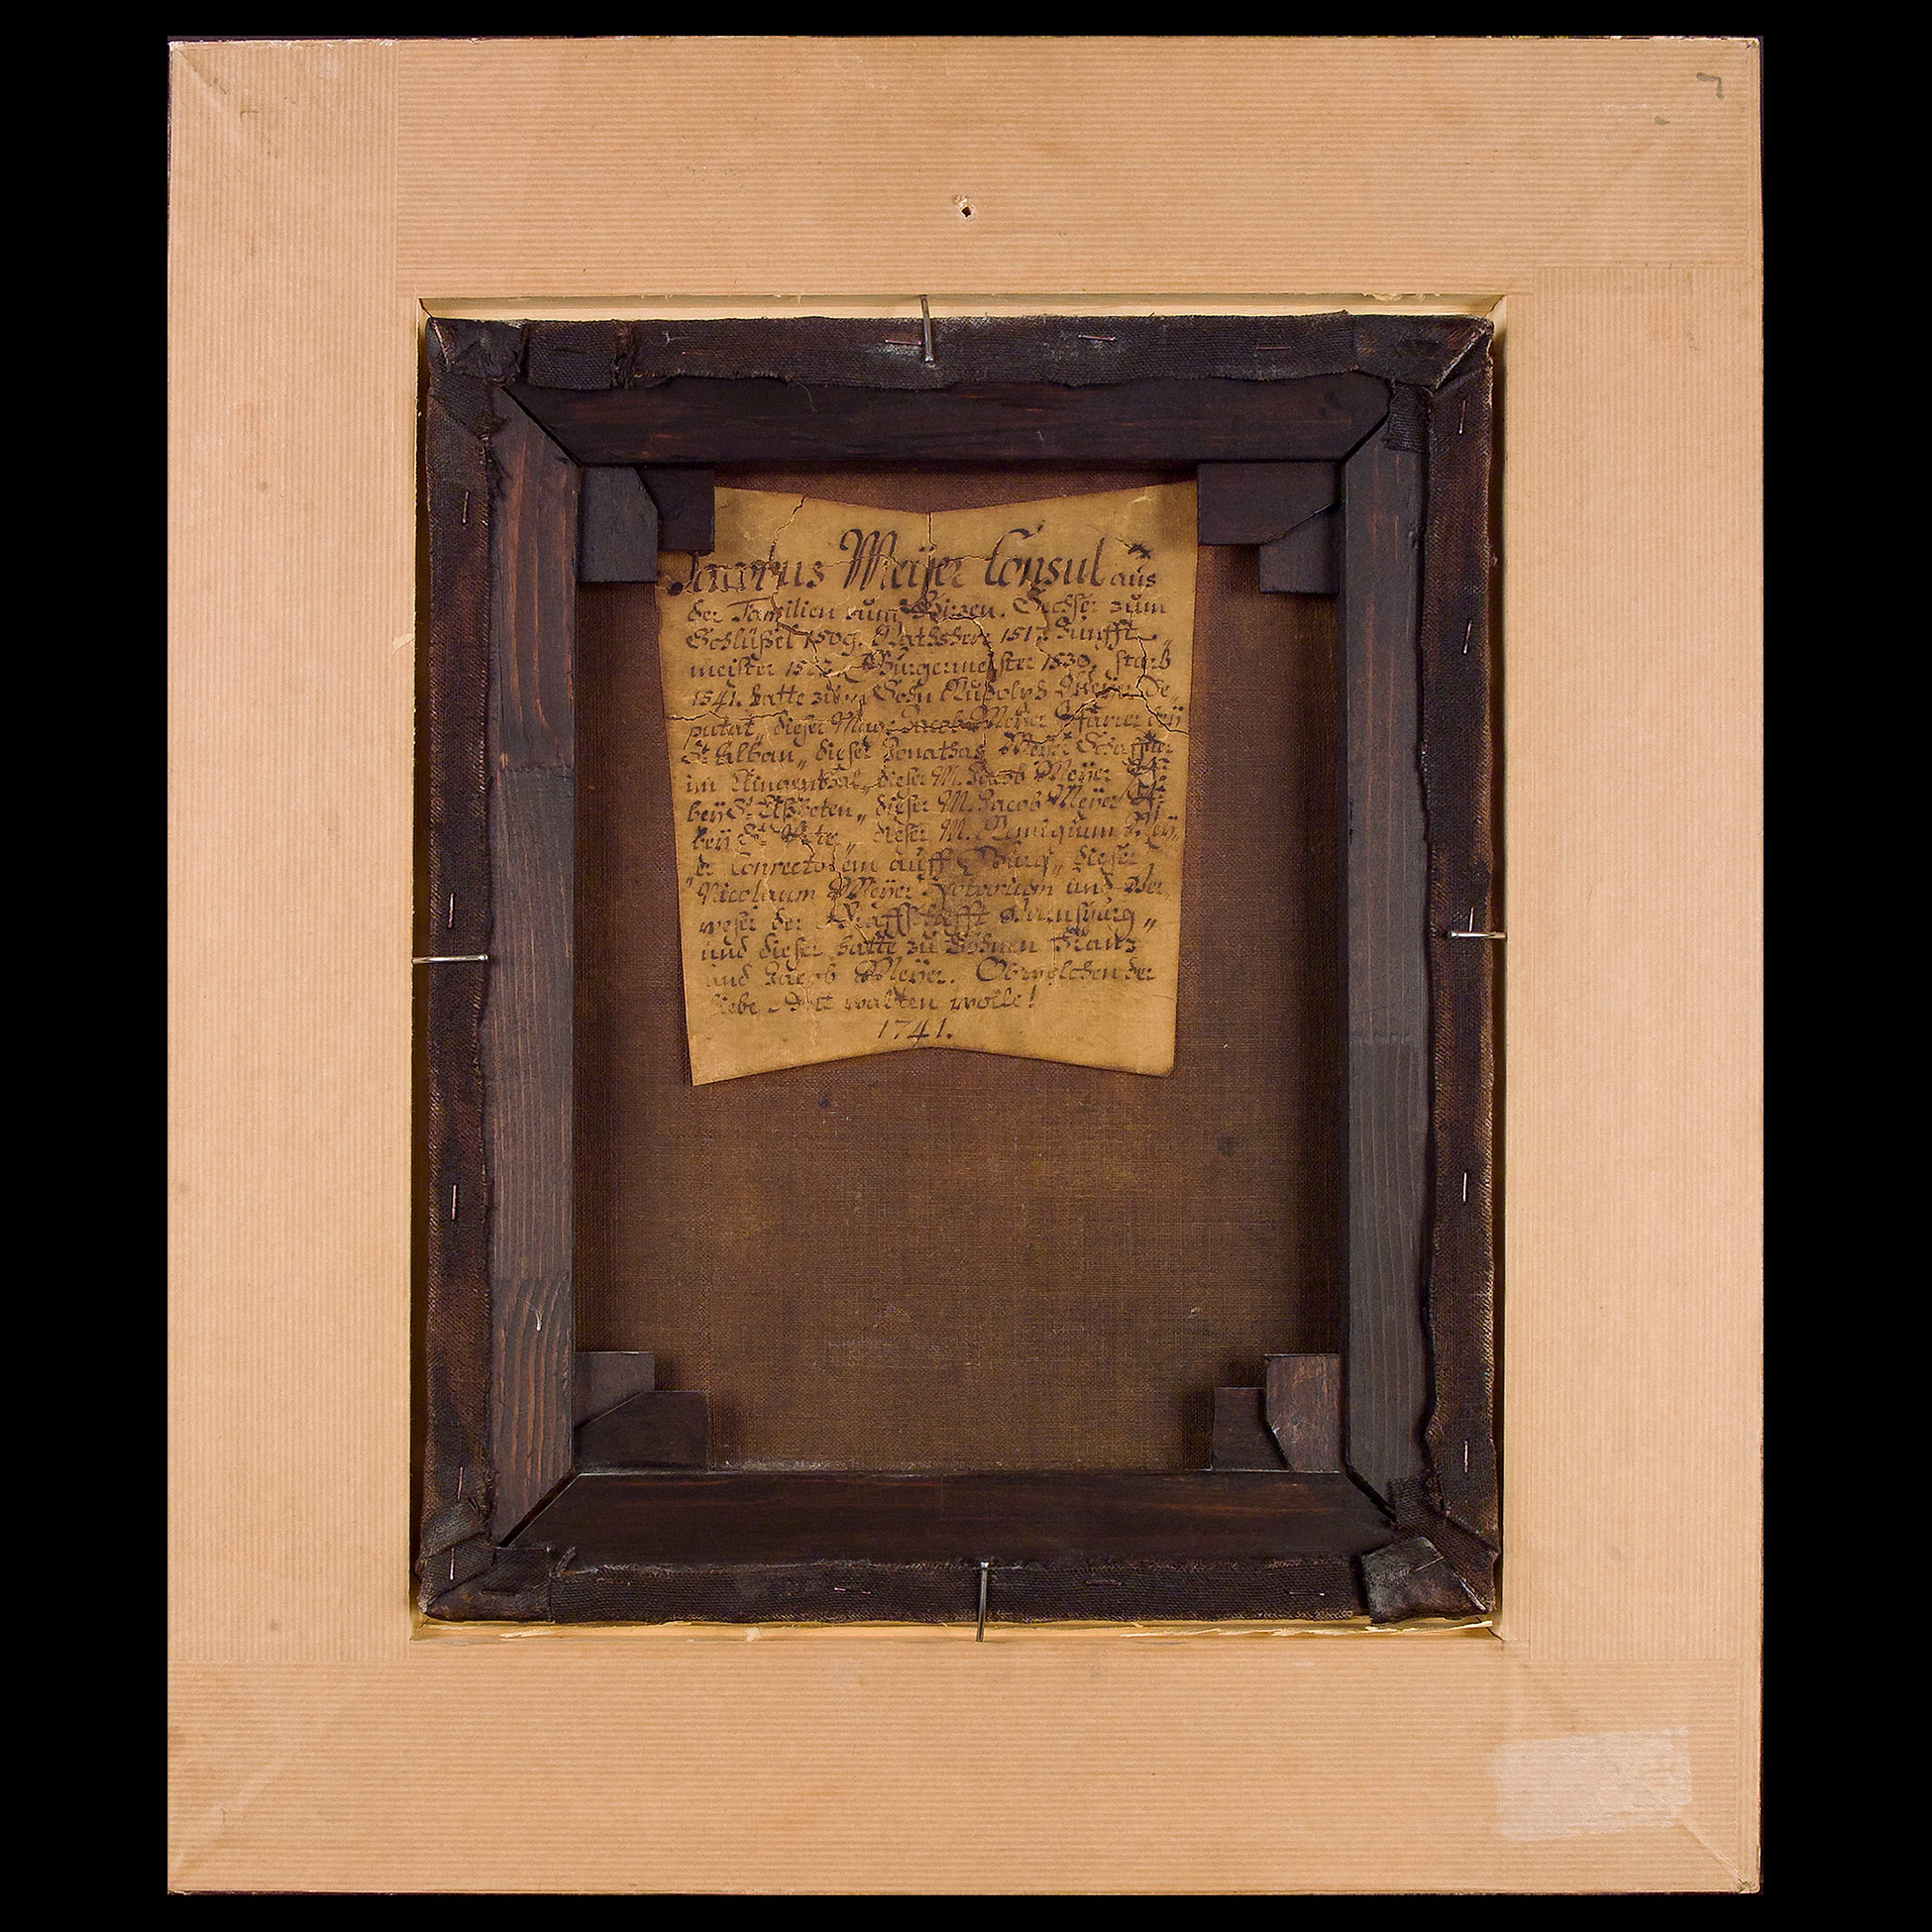 Jacobus Meÿer Consul aus
der Familien zum Hirzen. Sechser zum
Schlüßel 1509. Rathsherr 1517. Zunfft„
meister 1522. Bürgermeister 1530. starb
1541. hatte zum Sohn Rudolph Meÿer De„
putat„ dieser Mag. Jacob Meÿer Pfarrer beÿ
St Alban„ dieser Jonathas Meÿer Schaffner
im Klingenthal„ dieser M. Jacob Meÿer
beÿ St Elßbeten„ dieser M. Jacob Meÿer Pfr
beÿ St Peter„ dieser M. Remigium Meÿ„
„er Conrectorem auff Burg„ dieser
Nicolaum Meÿer Notarium und Ver„
weser der Graffschafft Varnspurg„
und dieser hatte zu Söhnen Franz
und Jacob Meÿer. Ob welchen der
liebe Gott walten wolle!
1741.